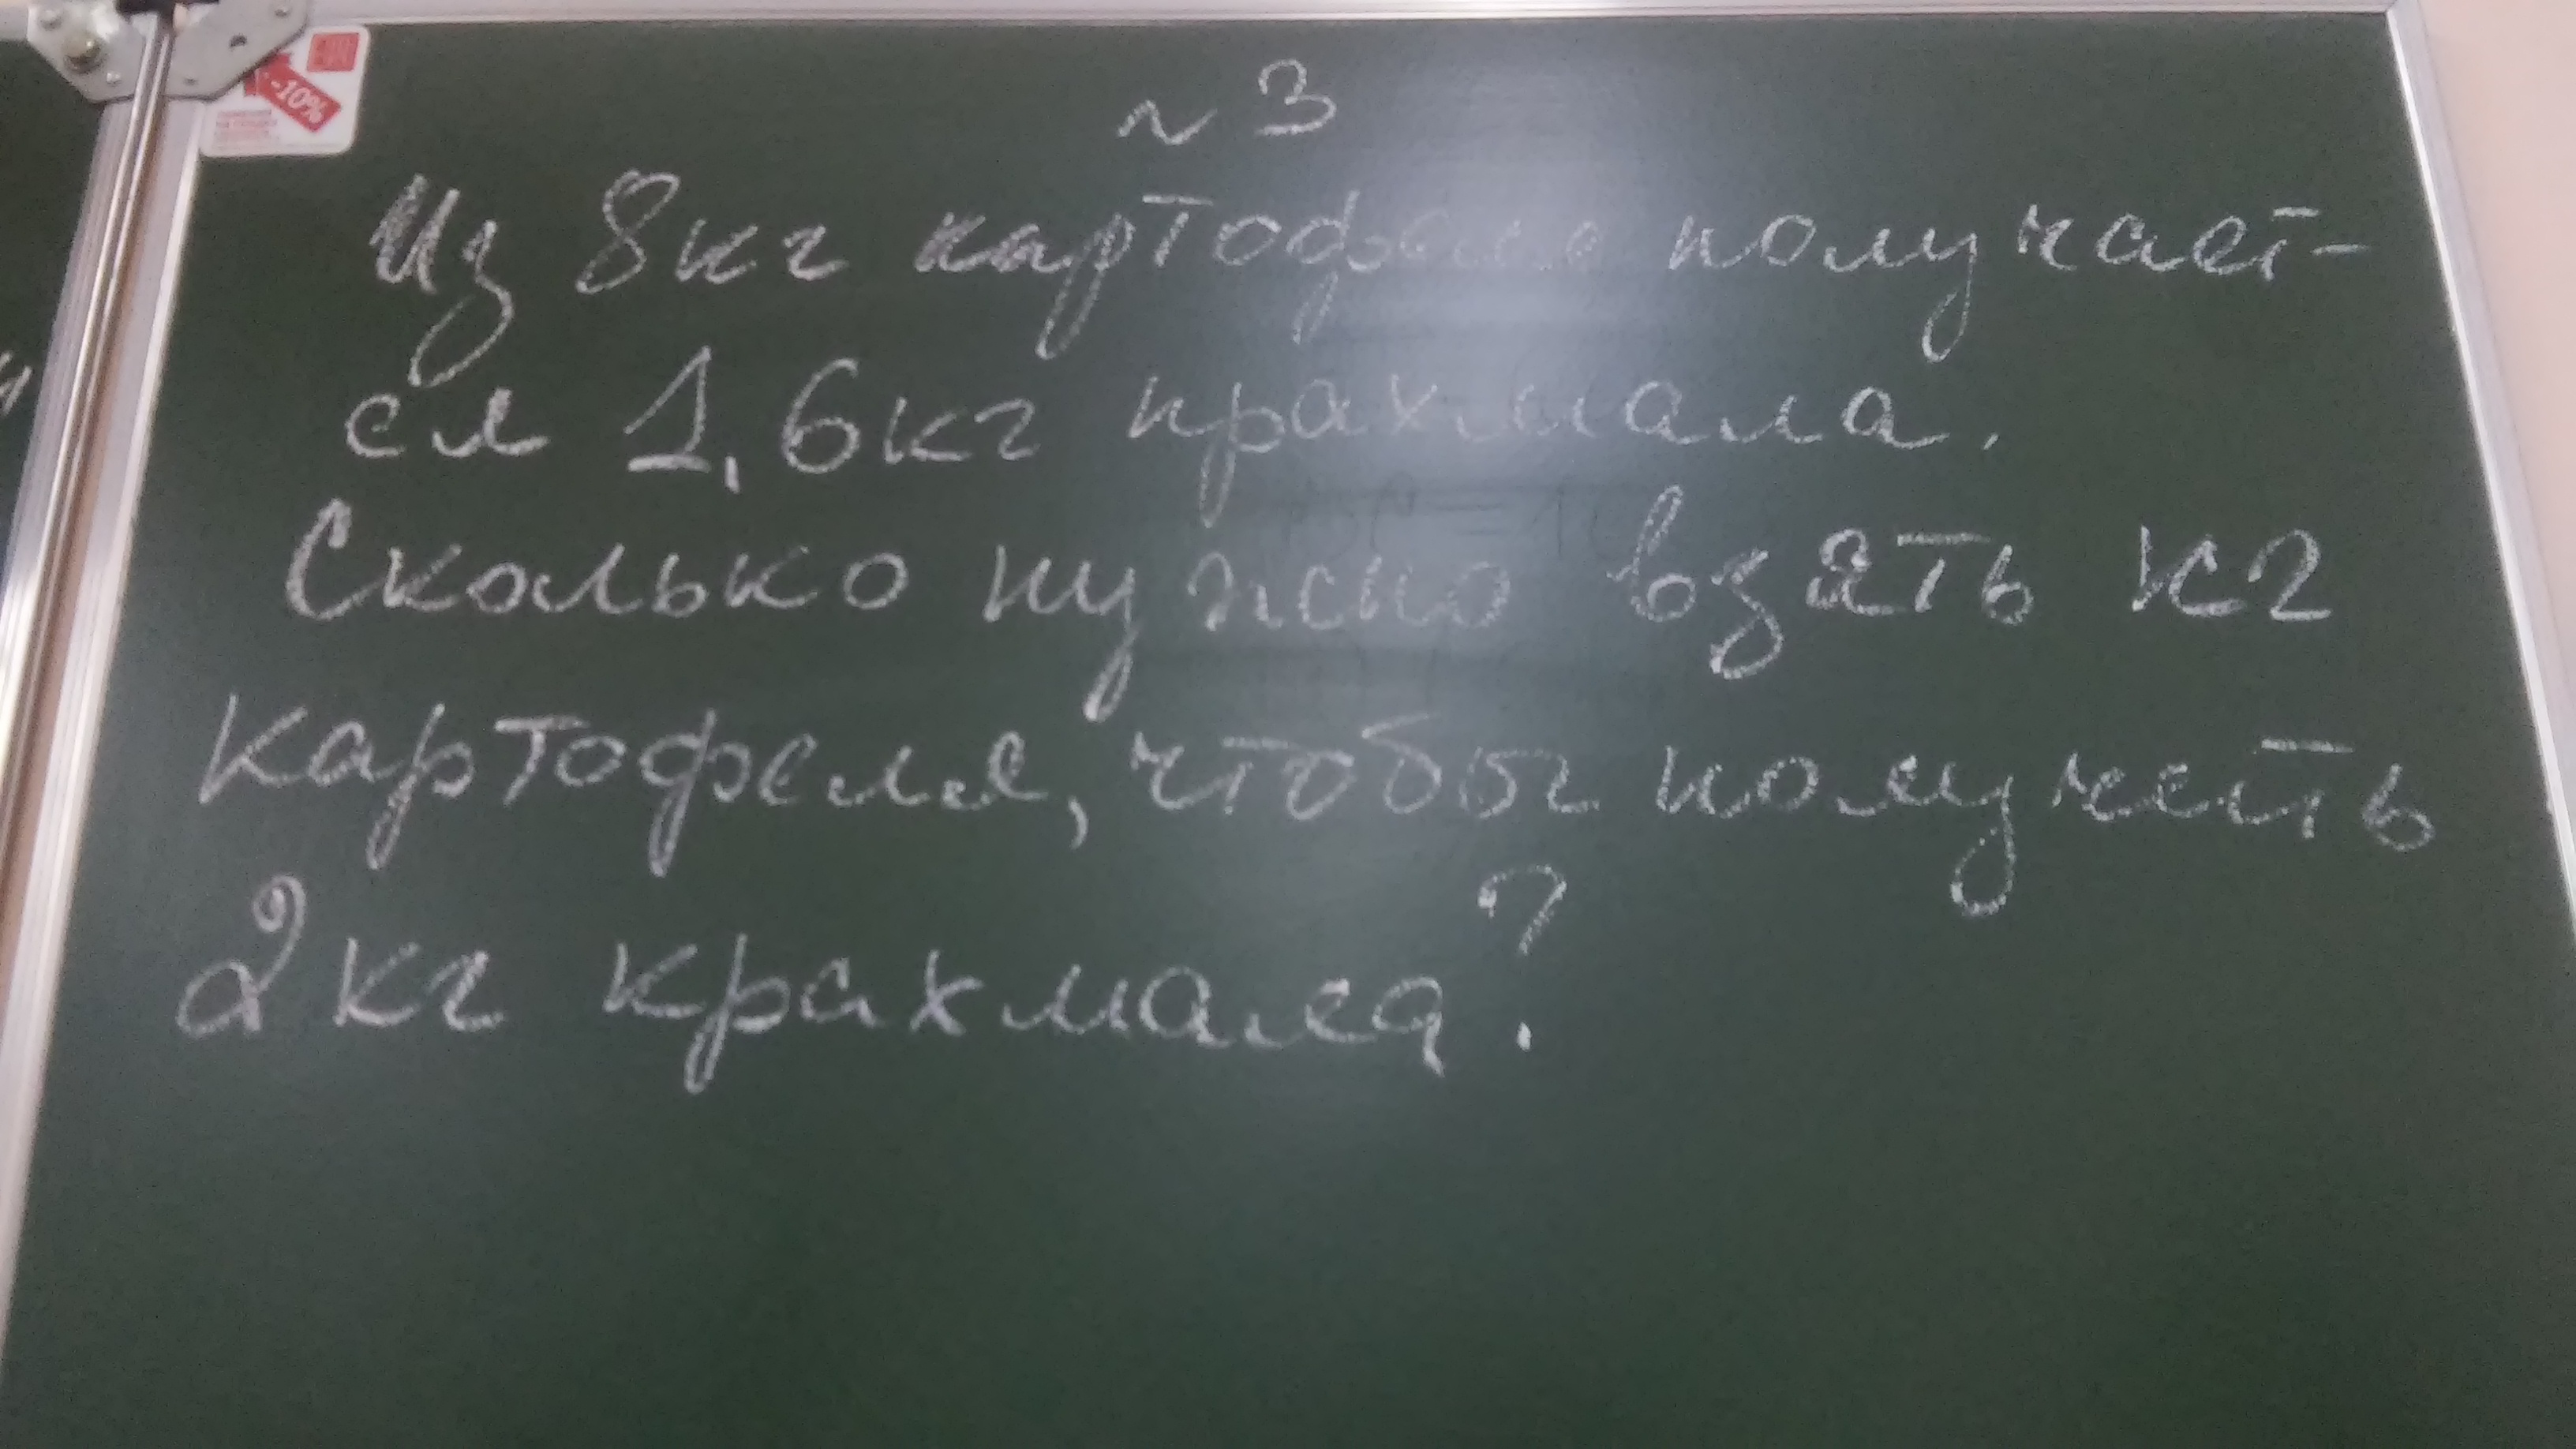 -10%
№3
Из 8кг картофеля получает-
ся 1,6кг крахмала.
Сколько нужно взять кг
картофеля, чтобы получить
2кг крахмала?